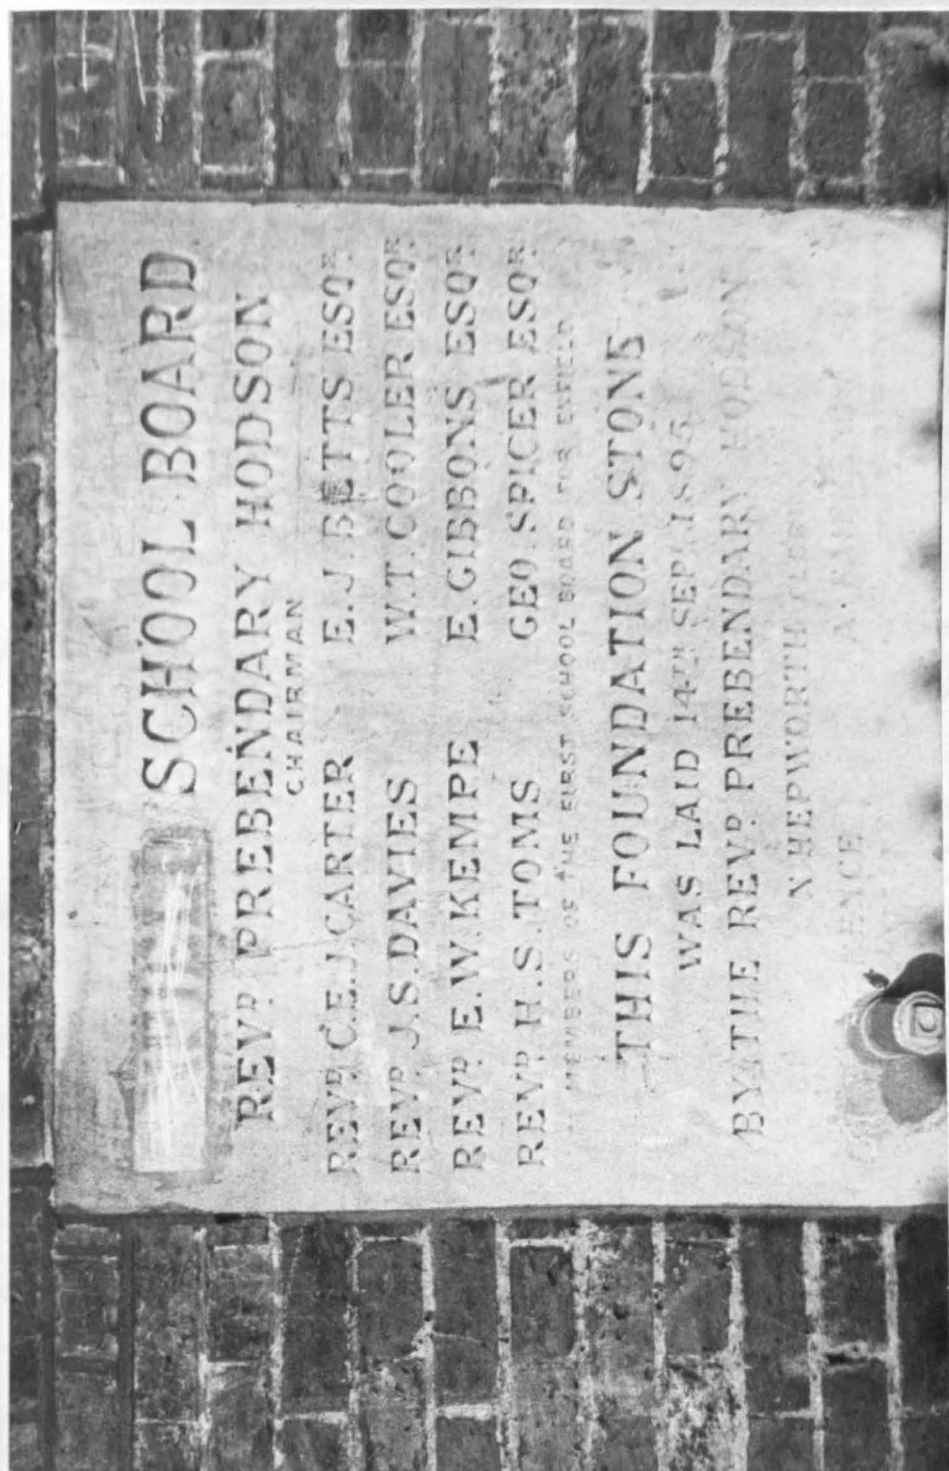 SCHOOL BOARD
REVD. PREBENDARY HODSON
CHAIRMAN
REVD. C.E.J. CARTER E.J. BETTS ESQR.
REVD. J.S. DAVIES W.T. COOLER ESQR.
REVD. E.W. KEMPE E. GIBBONS ESQR.
REVD. H.S. TOMS GEO. SPICER ESQR.
MEMBERS OF THE FIRST SCHOOL BOARD FOR ENFIELD
THIS FOUNDATION STONE
WAS LAID 14TH SEPR. 1895
BY THE REVD. PREBENDARY HODSON
HEPWORTH CLERK